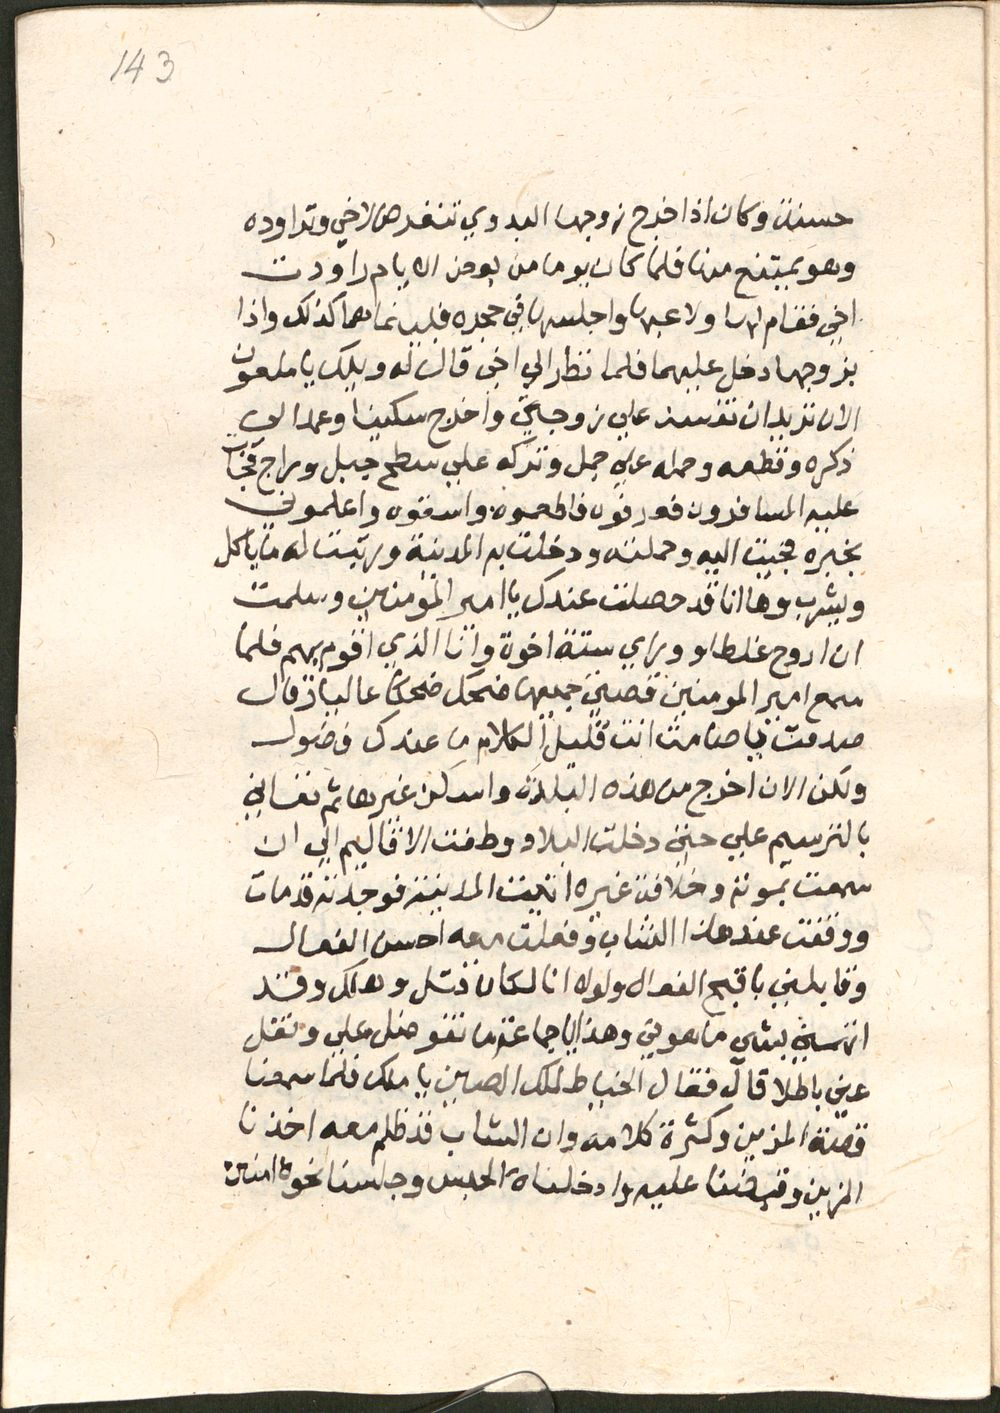 143
حسنة وكان اذا خرج زوجها البدوي تنفرد من لاخي وتراوده
وهو يمتنع منها فلما كان يوما من بعض الايام راودت
اخي فقام لها ولاعبها واجلسها في حجره فبينماهما كذلك واذا
بزوجها دخل عليهما فلما نظر الي اخي قال له ويلك يا ملعون
الان تريد ان تفسد علي زوجتي واخرج سكينا وعمد الى
ذكره وقطعه وحمله علي جمل وتركه علي سطح جبل وراح فجاز
عليه المسافرون فعرفوه فاطعموه واسقوه واعلموني
بخبره فجيت اليه وحملته ودخلت به المدينة ورتبت له ما ياكل
ويشرب وها انا قد حصلت عندك يا امير المؤمنين وسلمت
ان اروح غلطا وورايي ستة اخوة وانا الذي اقوم بهم فلما
سمع امير المومنين قصتي جميعها ضحك ضحكا عاليا وقال
صدقت يا صامت انت قليل الكلام ما عندك فضول
ولكن الان اخرج من هذه البلدة واسكن غيرها ثم نفاني
بالترسيم علي حتي دخلت البلاد وطفت الاقاليم الي ان
سمعت بموته وخلافة غيره اتيت المدينة فوجدته قد مات
ووقفت عند هذا الشاب وفعلت معه احسن الفعال
وقابلني باقبح الفعال ولولا انا لكان قتل وهلك وقد
اتهمني بشي ما هو في وهذا يا جماعة ما نفو ضل علي ونقل
عني باطلا قال فقال الخياط لملك الصين يا ملك فلما سمعنا
قصة المزين وكثرة كلامه وان الشاب قد ظلم معه اخذنا
المزين وقبضنا عليه وادخلناه الحبس وجلسنا نحوه امنين